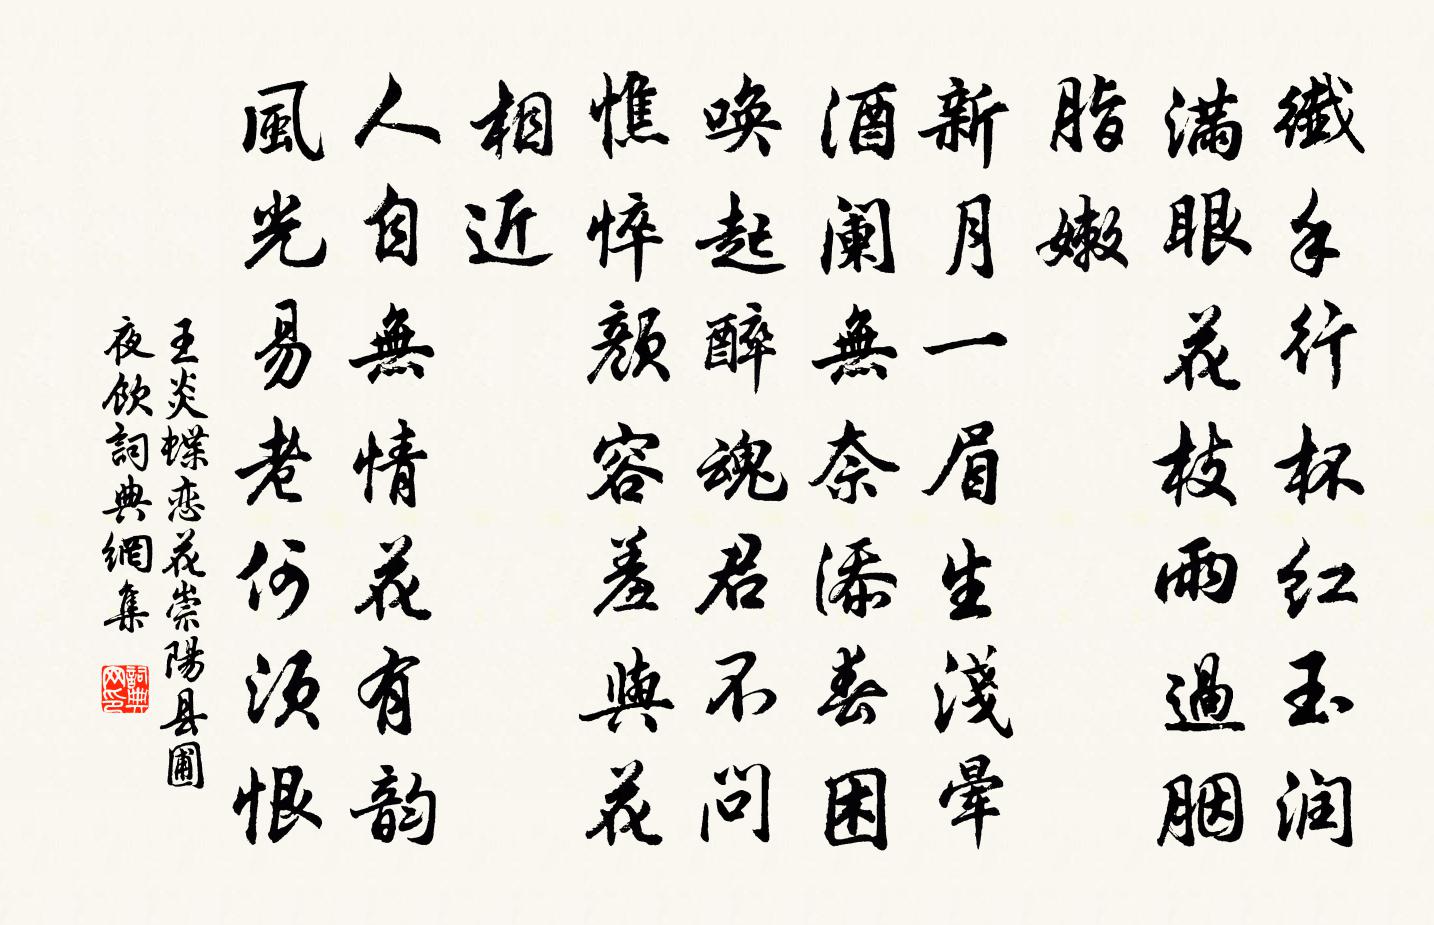 纖手行杯红玉润
满眼花枝雨過胭
脂嫩
新月一眉生淺暈
酒阑無奈添春困
喚起醉魂君不问
憔悴顏容羞與花
相近
人自無情花有韵
風光易老何须恨
王炎蝶恋花崇陽县圃
夜飲詞典網集
詞典
网印